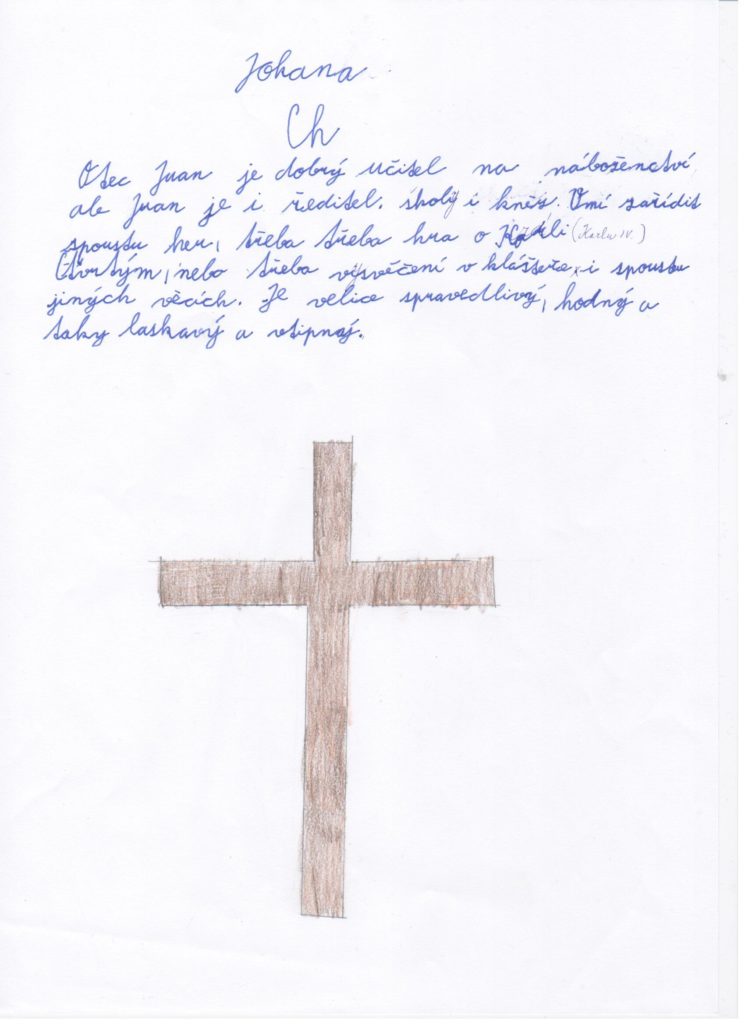 Johana
Ch
Otec Juan je dobrý učitel na náboženctví
ale Juan je i ředitel. školy i kněz. Umí zařídit
spoustu her, třeba třeba hra o Karli (Karlu IV.)
Čtvrtým, nebo třeba vysvěčení v klášteře, i spoustu
jiných věcích. Je velice spravedlivý, hodný a
taky laskavý a vtipnej.